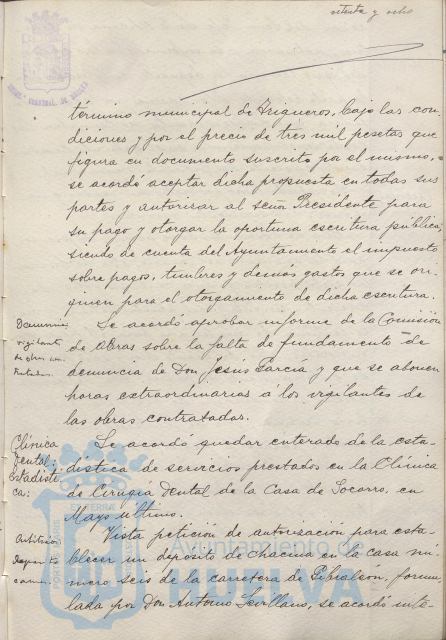 setenta y ocho
término municipal de Trigueros, bajo las con-
diciones y por el precio de tres mil pesetas que
figura en documento suscrito por el mismo,
se acordó aceptar dicha propuesta en todas sus
partes y autorizar al señor Presidente para
su pago y otorgar la oportuna escritura pública,
siendo de cuenta del Ayuntamiento el impuesto
sobre pagos, timbres y demas gastos que se ori-
ginen para el otorgamiento de dicha escritura.
Denuncia
vigilante
de obras con-
tratadas.
Se acordó aprobar informe de la Comisión
de Obras sobre la falta de fundamento de
denuncia de Don Jesús García y que se abonen
horas extraordinarias á los vigilantes de
las obras contratadas.
Clínica
Dental:
Estadísti-
ca:
Se acordó quedar enterado de la esta-
dística de servicios prestados en la Clínica
de Cirugía Dental de la Casa de Socorro, en
Mayo último.
Vista petición de autorización para esta-
blecer un depósito de chacina en la casa nú-
mero seis de la carretera de Gibraleon, formu-
lada por Don Antonio Sevillano, se acordó inte-
Ayuntamiento de
HUELVA